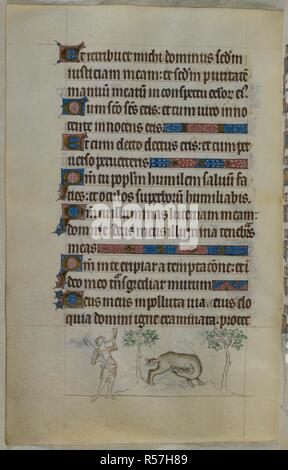 Et retribuet michi dominus sedm
iusticiam meam: et sedm puritate
manuu mearu in conspectu oculor ei
Cum sco scs eris: et cum uiro inno
cente innocens eris
Et cum electo electus eris: et cum per
uerso peruerteris
Qm tu poplm humilem saluu fa
cies: et oculos superboru humiliabis
Qm tu illuminas lucernam meam:
domine deus meus illumina tenebras
meas
Qm in te eripiar a temptacone: et i
deo meo tnsgrediar murum
Deus meus impolluta uia eius elo
quia domini igne examinata: protec
alamy
R57H89